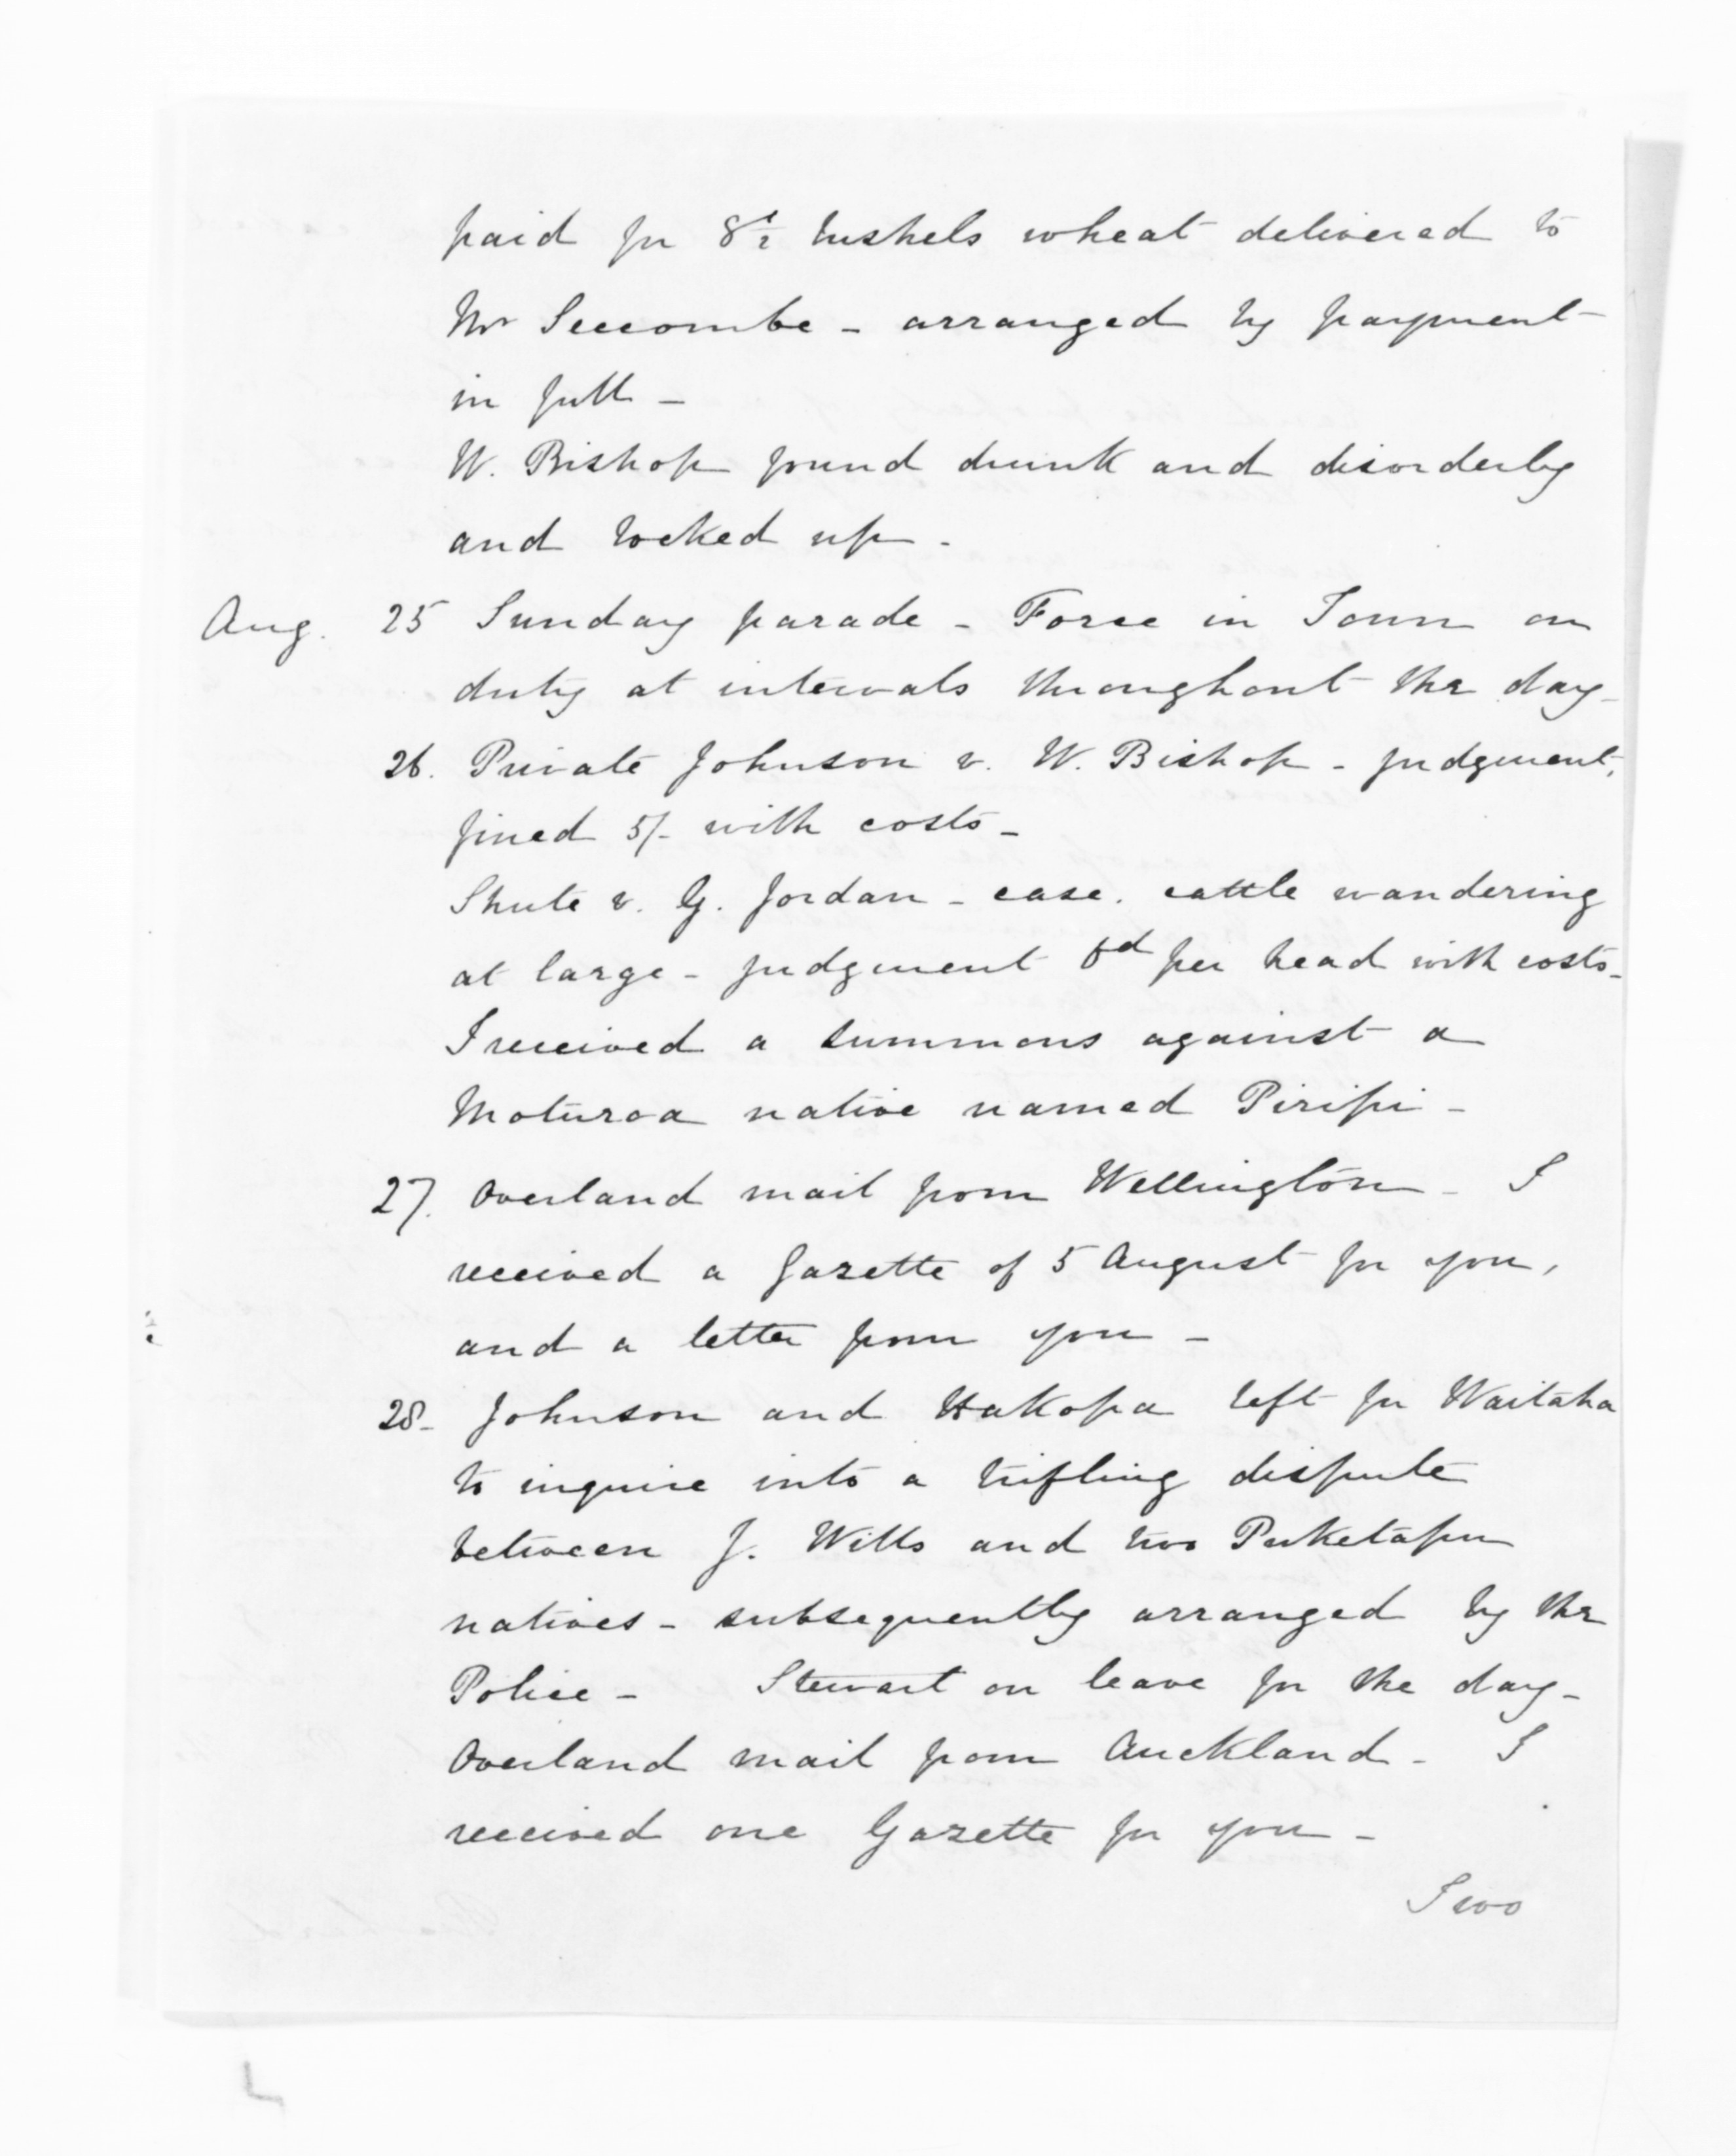 paid for 8½ bushels wheat delivered to
Mr Seccombe - arranged by payment
in full -
W. Bishop found drunk and disorderly
and locked up -
Aug. 25 Sunday parade - Force in Town on
duty at intervals throughout the day -
26. Private Johnson v. W. Bishop - judgment,
fined 5/- with costs -
Shute v. G. Jordan - case. cattle wandering
at large - judgment 6d per head with costs -
I received a summons against a
Moturoa native named Piripi -
27. Overland mail from Wellington - I
received a Gazette of 5 August for you,
and a letter from you -
28 - Johnson and Hakopa left for Waitaha
to inquire into a trifling dispute
between J. Wills and two Puketapu
natives - subsequently arranged by the
Police - Stewart on leave for the day -
Overland mail from Auckland - I
received one Gazette for you -
Two